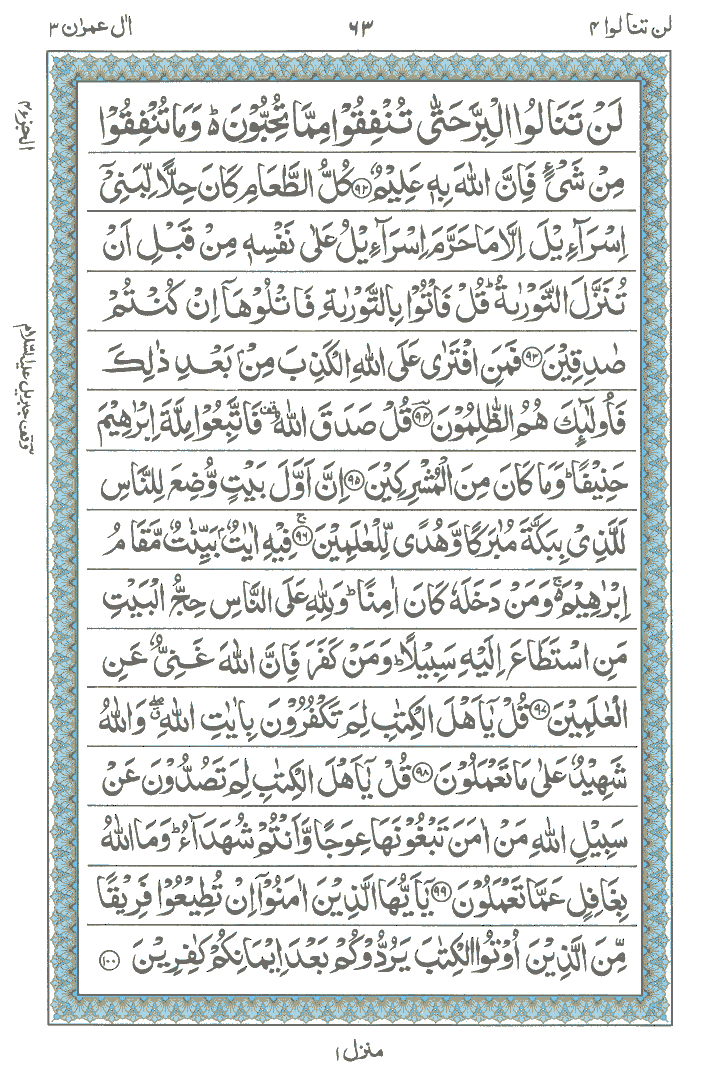 لن تنالوا ۴
۶۳
اٰل عمرٰن ۳
الجزء ۴
لَنْ تَنَالُوا الْبِرَّ حَتّٰى تُنْفِقُوْا مِمَّا تُحِبُّوْنَ ؕ وَمَا تُنْفِقُوْا
مِنْ شَیْءٍ فَاِنَّ اللّٰهَ بِهٖ عَلِیْمٌ ﴿۹۲﴾ كُلُّ الطَّعَامِ كَانَ حِلًّا لِّبَنِیْۤ
اِسْرَآءِیْلَ اِلَّا مَا حَرَّمَ اِسْرَآءِیْلُ عَلٰى نَفْسِهٖ مِنْ قَبْلِ اَنْ
تُنَزَّلَ التَّوْرٰىةُ ؕ قُلْ فَاْتُوْا بِالتَّوْرٰىةِ فَاتْلُوْهَاۤ اِنْ كُنْتُمْ
صٰدِقِیْنَ ﴿۹۳﴾ فَمَنِ افْتَرٰى عَلَى اللّٰهِ الْكَذِبَ مِنْۢ بَعْدِ ذٰلِكَ
فَاُولٰٓىِٕكَ هُمُ الظّٰلِمُوْنَ ﴿۹۴﴾ قُلْ صَدَقَ اللّٰهُ ۫ فَاتَّبِعُوْا مِلَّةَ اِبْرٰهِیْمَ
حَنِیْفًا ؕ وَمَا كَانَ مِنَ الْمُشْرِكِیْنَ ﴿۹۵﴾ اِنَّ اَوَّلَ بَیْتٍ وُّضِعَ لِلنَّاسِ
لَلَّذِیْ بِبَكَّةَ مُبٰرَكًا وَّهُدًى لِّلْعٰلَمِیْنَ ﴿۹۶﴾ۚ فِیْهِ اٰیٰتٌۢ بَیِّنٰتٌ مَّقَامُ
اِبْرٰهِیْمَ ۚ۬ وَمَنْ دَخَلَهٗ كَانَ اٰمِنًا ؕ وَلِلّٰهِ عَلَى النَّاسِ حِجُّ الْبَیْتِ
مَنِ اسْتَطَاعَ اِلَیْهِ سَبِیْلًا ؕ وَمَنْ كَفَرَ فَاِنَّ اللّٰهَ غَنِیٌّ عَنِ
الْعٰلَمِیْنَ ﴿۹۷﴾ قُلْ یٰۤاَهْلَ الْكِتٰبِ لِمَ تَكْفُرُوْنَ بِاٰیٰتِ اللّٰهِ ۖۗ وَاللّٰهُ
شَهِیْدٌ عَلٰى مَا تَعْمَلُوْنَ ﴿۹۸﴾ قُلْ یٰۤاَهْلَ الْكِتٰبِ لِمَ تَصُدُّوْنَ عَنْ
سَبِیْلِ اللّٰهِ مَنْ اٰمَنَ تَبْغُوْنَهَا عِوَجًا وَّاَنْتُمْ شُهَدَآءُ ؕ وَمَا اللّٰهُ
بِغَافِلٍ عَمَّا تَعْمَلُوْنَ ﴿۹۹﴾ یٰۤاَیُّهَا الَّذِیْنَ اٰمَنُوْۤا اِنْ تُطِیْعُوْا فَرِیْقًا
مِّنَ الَّذِیْنَ اُوْتُوا الْكِتٰبَ یَرُدُّوْكُمْ بَعْدَ اِیْمَانِكُمْ كٰفِرِیْنَ ﴿۱۰۰﴾
وقف جبریل علیہ السلام
منزل ۱